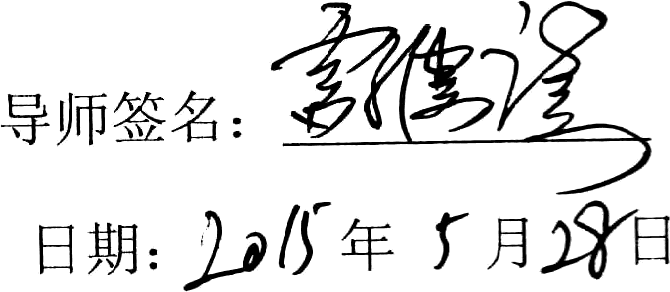 导师签名：
日期：2015年5月28日